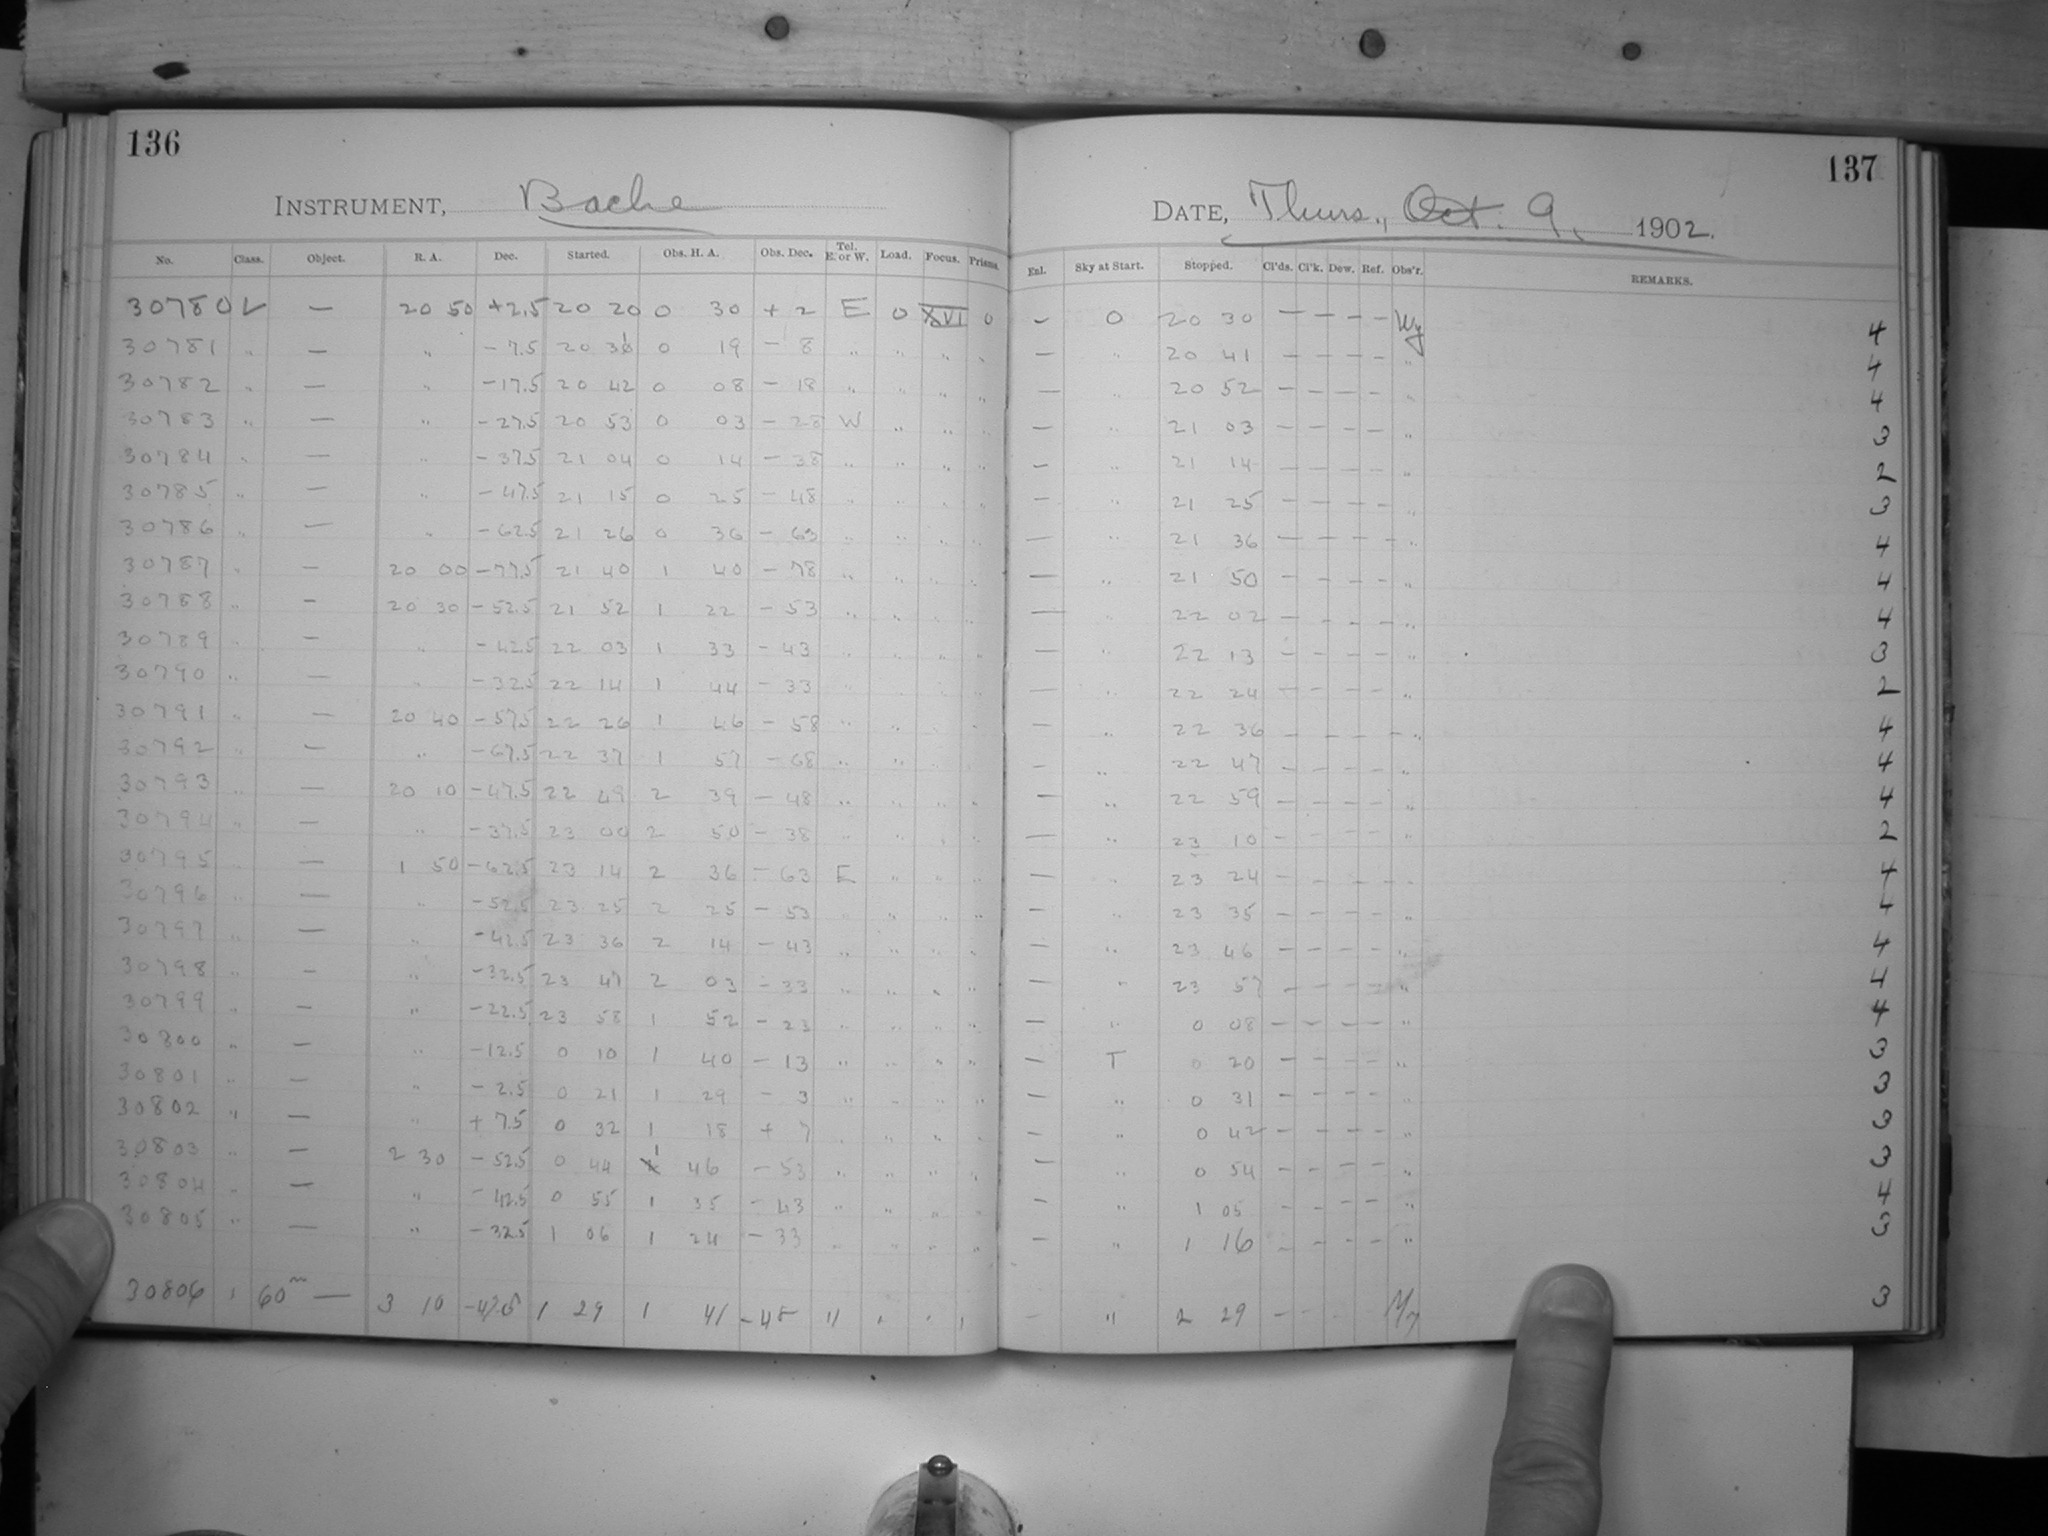 136
137
INSTRUMENT, Bache
DATE, Thurs., Oct. 9, 1902.
No. Class. Object. R. A. Dec. Started. Obs. H. A. Obs. Dec. Tel. E. or W. Load. Focus. Prisms. Exl. Sky at Start. Stopped. Cl'ds. Cl'k. Dew. Ref. Obs'r. REMARKS.
30780 L — 20 50 +2.5 20 20 0 30 + 2 E 0 XVI 0 — 0 20 30 — — — — Wy 4
30781 " — " - 7.5 20 31 0 19 - 8 " " " " — " 20 41 — — — — " 4
30782 " — " -17.5 20 42 0 08 - 18 " " " " — " 20 52 — — — — " 4
30783 " — " -27.5 20 53 0 03 - 28 W " " " — " 21 03 — — — — " 3
30784 " — " -37.5 21 04 0 14 - 38 " " " " — " 21 14 — — — — " 2
30785 " — " -47.5 21 15 0 25 - 48 " " " " — " 21 25 — — — — " 3
30786 " — " -62.5 21 26 0 36 - 63 " " " " — " 21 36 — — — — " 4
30787 " — 20 00 -77.5 21 40 1 40 - 78 " " " " — " 21 50 — — — — " 4
30788 " — 20 30 -52.5 21 52 1 22 - 53 " " " " — " 22 02 — — — — " 4
30789 " — " -42.5 22 03 1 33 - 43 " " " " — " 22 13 — — — — " 3
30790 " — " -32.5 22 14 1 44 - 33 " " " " — " 22 24 — — — — " 2
30791 " — 20 40 -57.5 22 26 1 46 - 58 " " " " — " 22 36 — — — — " 4
30792 " — " -67.5 22 37 1 57 - 68 " " " " — " 22 47 — — — — " 4
30793 " — 20 10 -47.5 22 49 2 39 - 48 " " " " — " 22 59 — — — — " 4
30794 " — " -37.5 23 00 2 50 - 38 " " " " — " 23 10 — — — — " 2
30795 " — 1 50 -62.5 23 14 2 36 - 63 E " " " — " 23 24 — — — — " 4
30796 " — " -52.5 23 25 2 25 - 53 " " " " — " 23 35 — — — — " 4
30797 " — " -42.5 23 36 2 14 - 43 " " " " — " 23 46 — — — — " 4
30798 " — " -32.5 23 47 2 03 - 33 " " " " — " 23 57 — — — — " 4
30799 " — " -22.5 23 58 1 52 - 23 " " " " — " 0 08 — — — — " 4
30800 " — " -12.5 0 10 1 40 - 13 " " " " — T 0 20 — — — — " 3
30801 " — " - 2.5 0 21 1 29 - 3 " " " " — " 0 31 — — — — " 3
30802 " — " + 7.5 0 32 1 18 + 7 " " " " — " 0 42 — — — — " 3
30803 " — 2 30 -52.5 0 44 1 46 - 53 " " " " — " 0 54 — — — — " 3
30804 " — " -42.5 0 55 1 35 - 43 " " " " — " 1 05 — — — — " 4
30805 " — " -32.5 1 06 1 24 - 33 " " " " — " 1 16 — — — — " 3
30806 " 60m — 3 10 -47.5 1 29 1 41 - 48 " " " " — " 2 29 — — 3